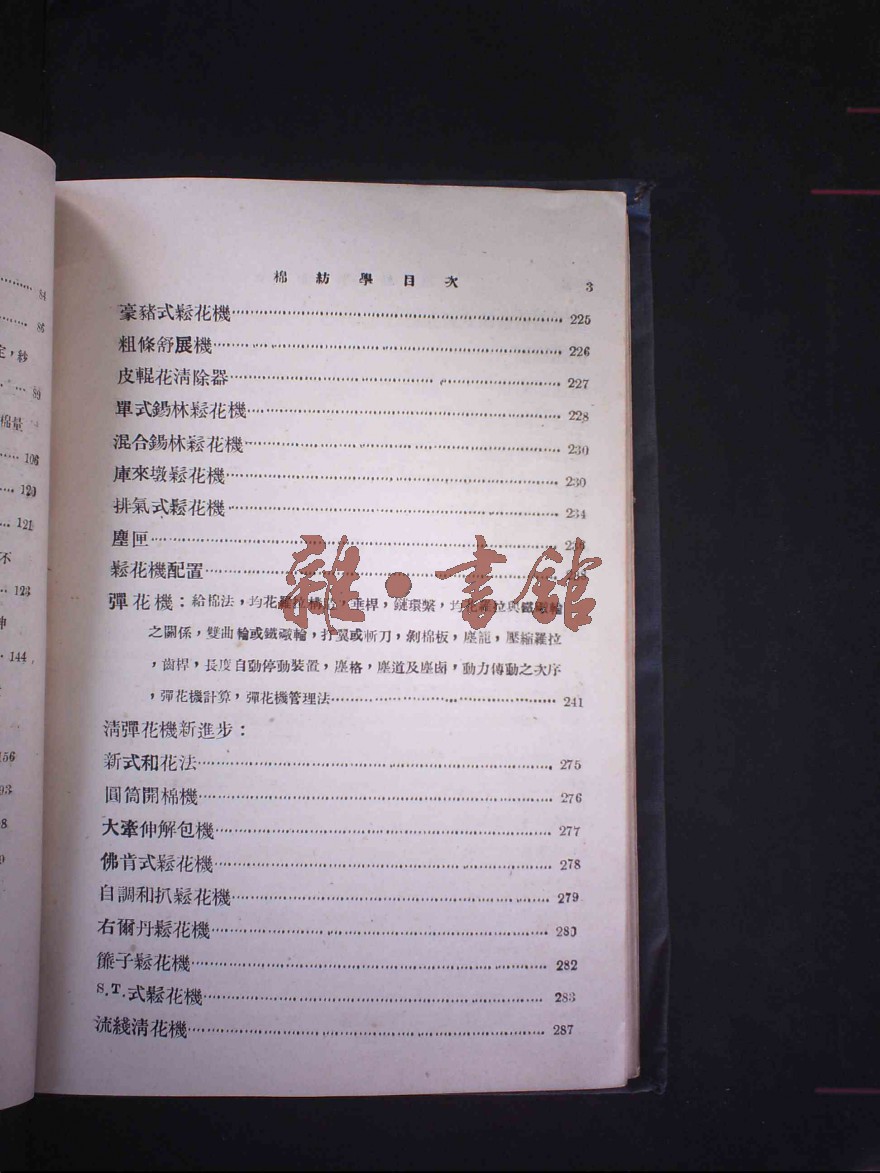 棉紡學目次 3
豪豬式鬆花機 225
粗條舒展機 226
皮輥花清除器 227
單式錫林鬆花機 228
混合錫林鬆花機 230
庫來墩鬆花機 230
排氣式鬆花機 234
塵匣
鬆花機配置
彈花機：給棉法，均花羅拉構，垂桿，鏈環槃，均花羅拉與鐵礮輪
之關係，雙曲輪或鐵礮輪，打翼或斬刀，剝棉板，塵龍，壓縮羅拉
，齒桿，長度自動停動裝置，塵格，塵道及塵鹵，動力傳動之次序
，彈花機計算，彈花機管理法 241
清彈花機新進步：
新式和花法 275
圓筒開棉機 276
大牽伸解包機 277
佛肯式鬆花機 278
自調和扒鬆花機 279
右爾丹鬆花機 280
簾子鬆花機 282
S.T.式鬆花機 283
流綫清花機 287
84
86
定，紗
89
棉量
106
120
121
不
123
伸
144
156
93
8
雜·書館